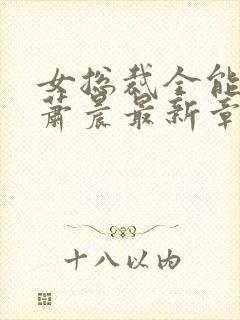 女总裁全能
萧晨最新章
十八以内